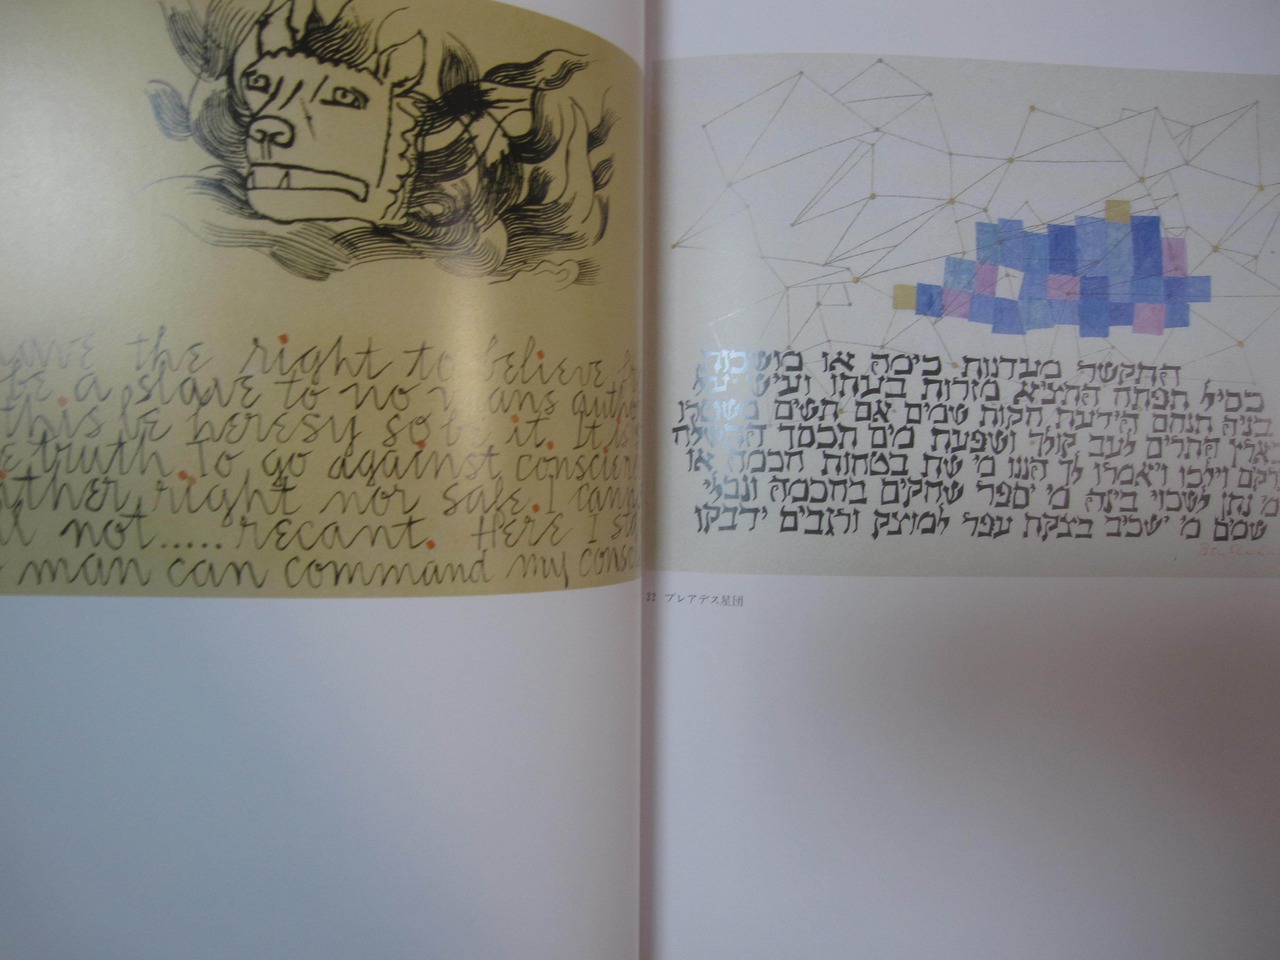 have the right to believe
be a slave to no mans autho
this be heresy so be it. It is
e truth. To go against conscien
ather right nor safe. I cann
ll not.....recant. Here I sta
man can command my consc
התקשר מעדנות כימה או מושכות
כסיל תפתח התציא מזרות בעתו ועיש על
בניה תנחם הידעת חקות שמים אם תשים משטרו
בארץ התרים לעב קולך ושפעת מים תכסך התשלח
ברקים וילכו ויאמרו לך הננו מי שת בטחות חכמה או
מי נתן לשכוי בינה מי יספר שחקים בחכמה ונבלי
שמים מי ישכיב בצקת עפר למוצק ורגבים ידבקו
22 プレアデス星団